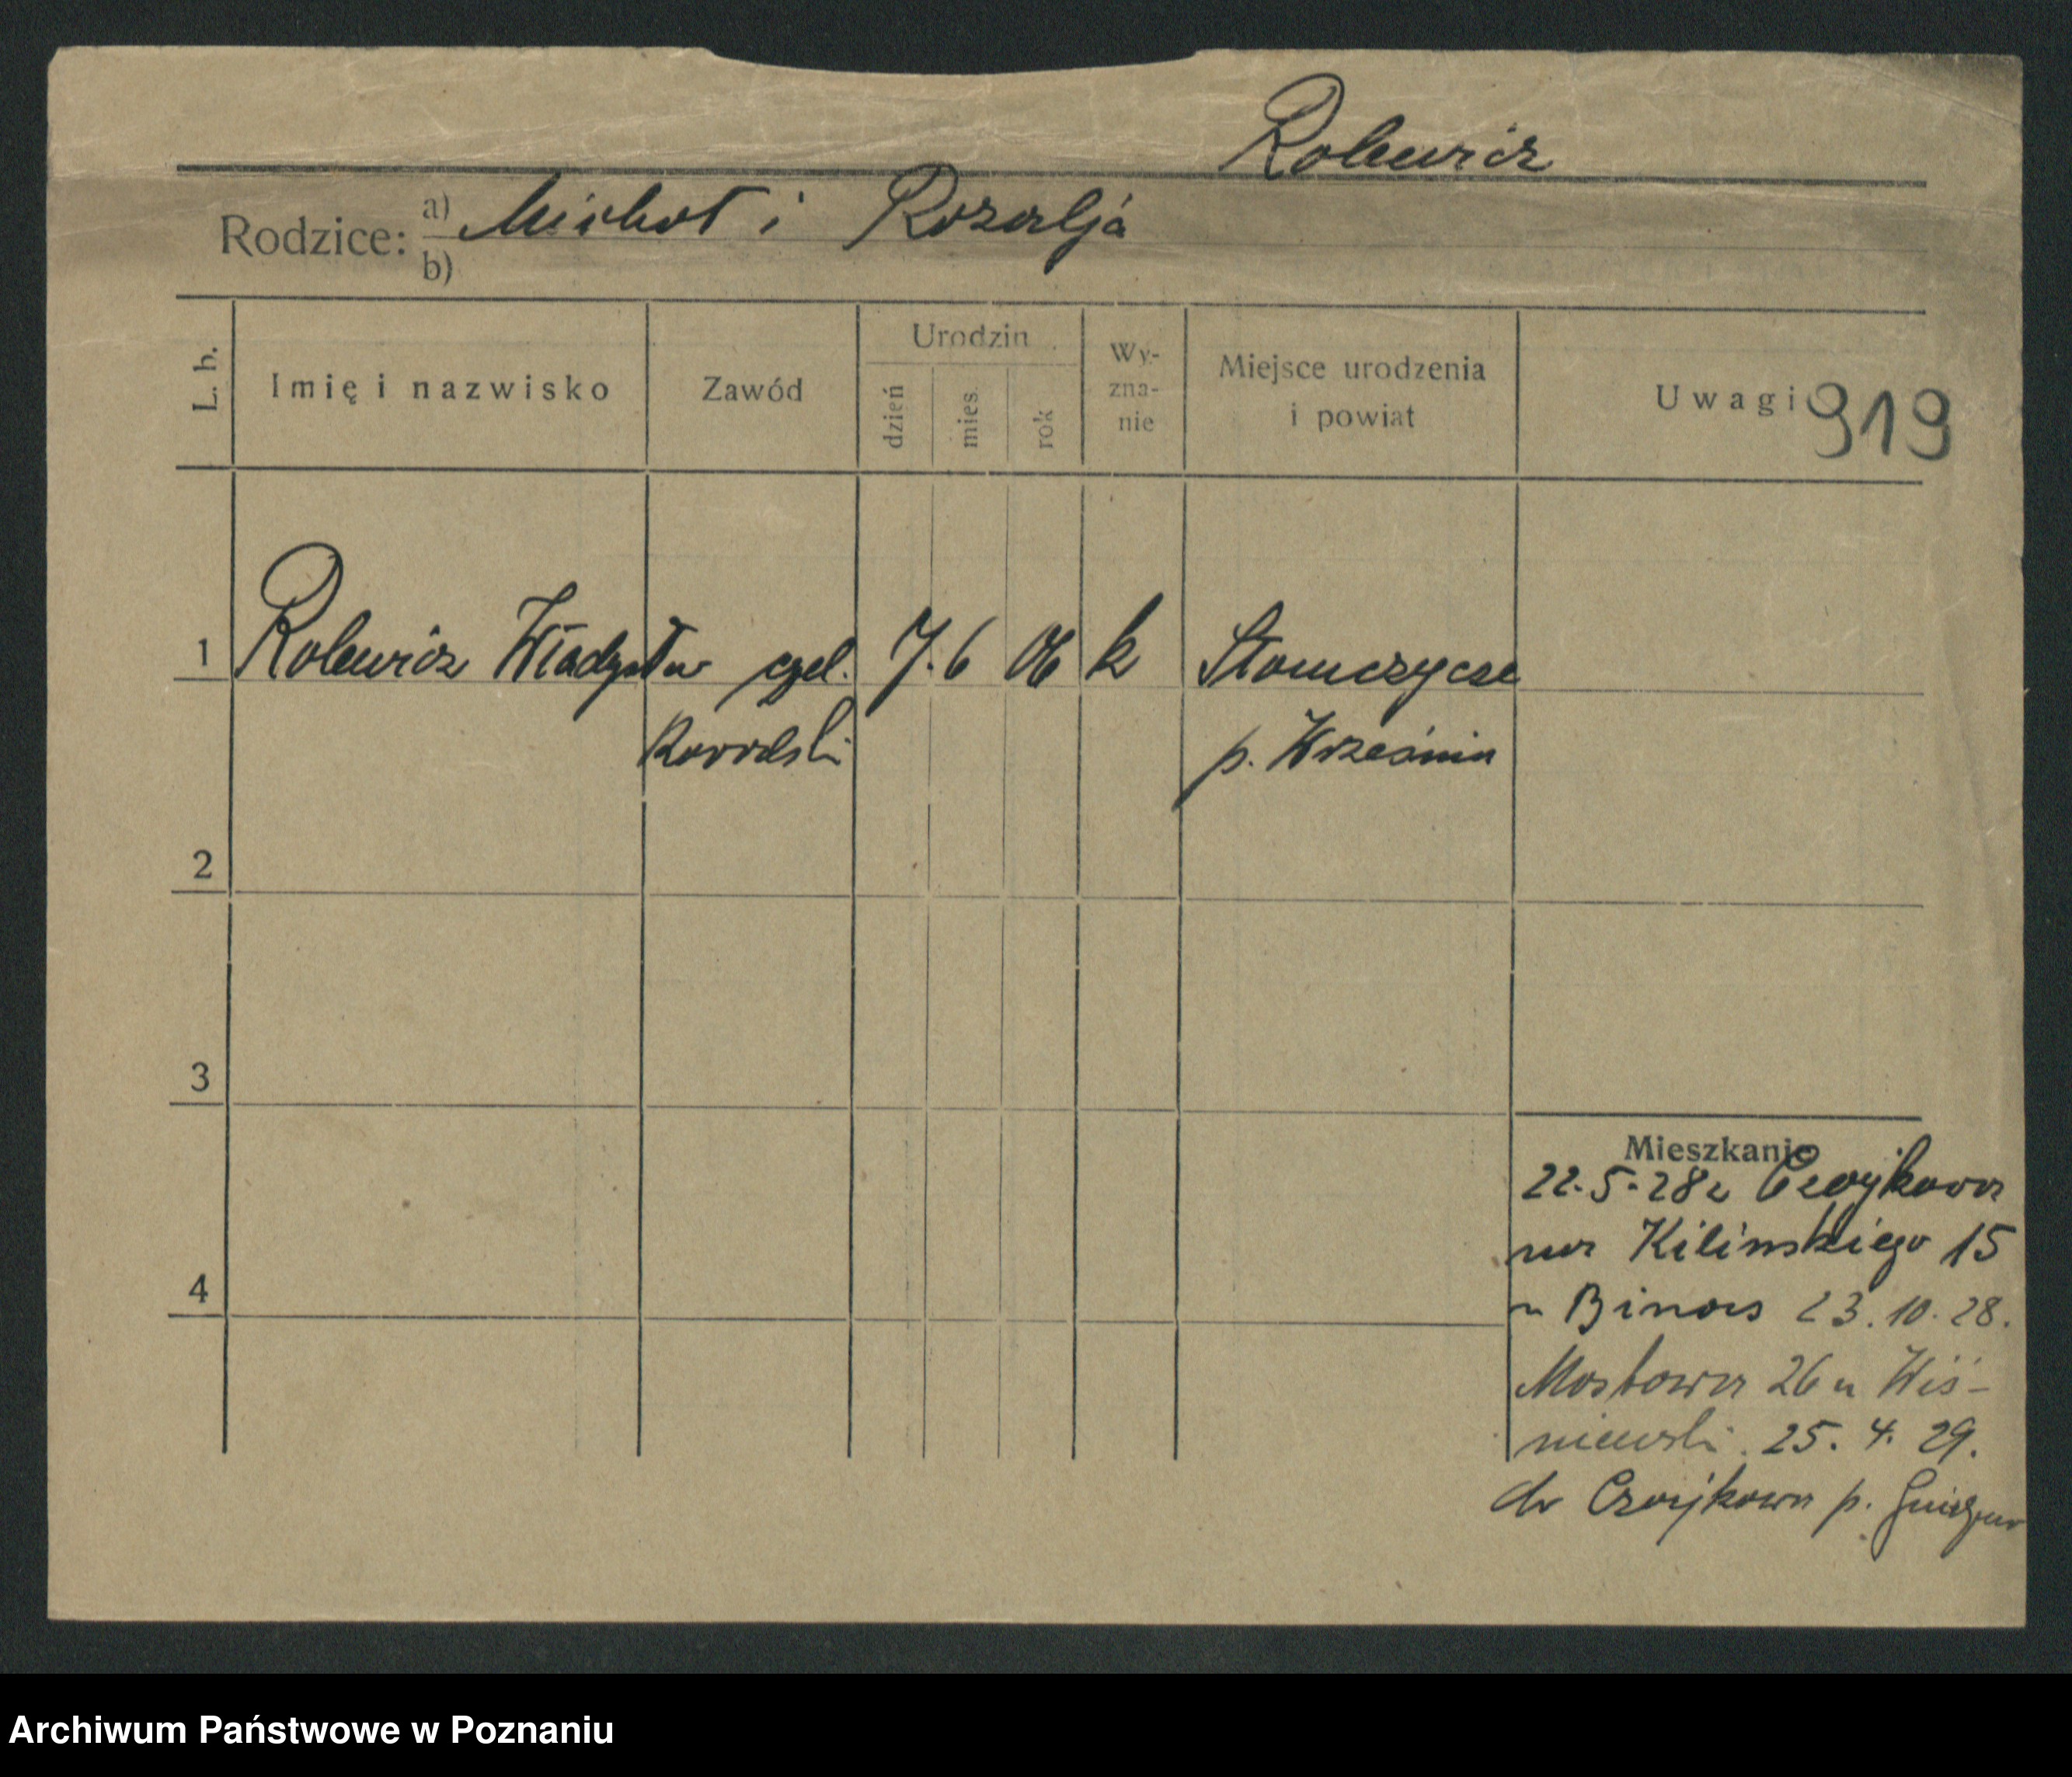 Rolewicz
Rodzice: a) Michał i Rozalja
b)
L. b.
Imię i nazwisko
Zawód
Urodzin
dzień
mies.
rok
Wy-
zna-
nie
Miejsce urodzenia
i powiat
Uwagi 919
1 Rolewicz Władysław czel. 7. 6 06 k Słomczyce
kowalski p. Września
2
3
4
Mieszkanie
22.5.28 z Czajkowa
na Kilinskiego 15
u Binas 23.10.28.
Mostowa 26 u Wiś-
niewski. 25. 4. 29.
do Czajkowa p. Gniezno
Archiwum Państwowe w Poznaniu